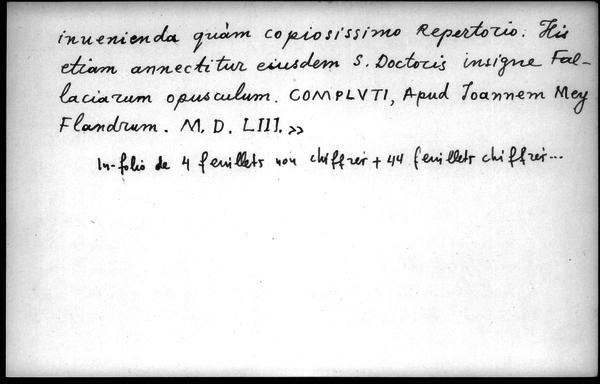 inuenienda quàm copiosissimo Repertorio. His
etiam annectitur eiusdem S. Doctoris insigne Fal-
laciarum opusculum. COMPLVTI, Apud Joannem Mey
Flandrum. M. D. LIII. »
In-folio de 4 feuillets non chiffrés + 44 feuillets chiffrés...